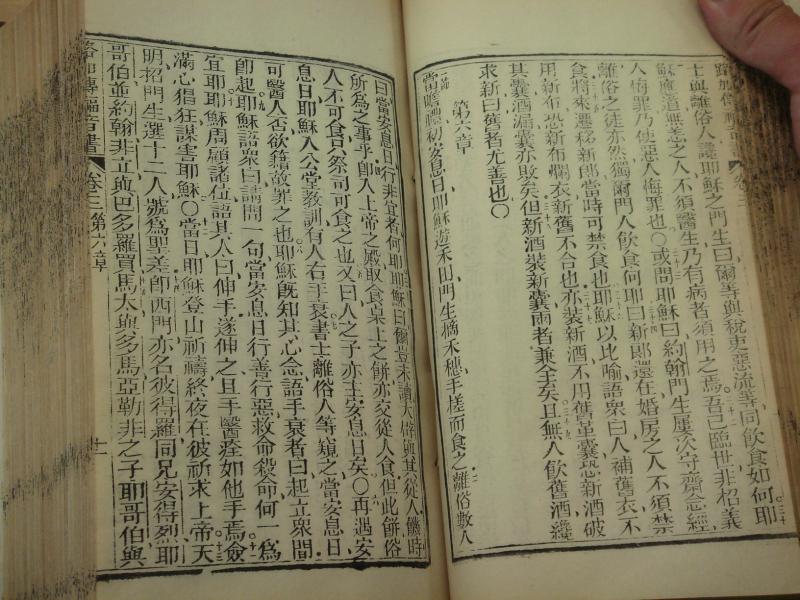 士與離俗人譏耶穌之門生曰爾等與稅吏惡流等同飲食如何耶
穌應道無恙之人不須醫生乃有病者須用之焉吾已臨世非招義
人悔罪乃使惡人悔罪也〇或問耶穌曰約翰門生屢次守齋念經
離俗之徒亦然獨爾門人飲食何耶曰新郎還在婚房之人不須禁
食將來遷移新郎當時可禁食也耶穌以比喻語眾曰人補舊衣不
用新布恐新布爛衣新舊不合也亦裝新酒不用舊革囊恐新酒破
其囊酒漏囊亦敗矣但新酒裝新囊兩者兼全矣且無人飲舊酒纔
求新曰舊者尤善也〇
第六章
當瞻禮初安息日耶穌遊禾田門生摘禾穗手搓而食之離俗數人
曰當安息日行非宜者何耶耶穌曰爾豈未讀大僻與其從人饑時
所為之事乎即人上帝之殿取食桌上之餅亦交從人食但此餅俗
人不可食只祭司可食之也又曰人之子亦主安息日矣〇再遇安
息日耶穌入公堂教訓有人右手衰書士離俗人等窺之當安息日
可醫人否欲籍故罪之也耶穌既知其心念語手衰者曰起立眾間
即起耶穌語眾曰請問一句當安息日行善行惡救命殺命何一為
宜耶耶穌周顧諸位語其人曰伸手遂伸之且手醫痊如他手焉僉
滿心猖狂謀害耶穌〇當日耶穌登山祈禱終夜在彼祈求上帝天
明招門生選十二人號為聖差即西門亦名彼得羅同兄安得烈耶
哥伯並約翰非立與巴多羅買馬太與多馬亞勒非之子耶哥伯與
路加傳福音書 卷三 第六章 十一